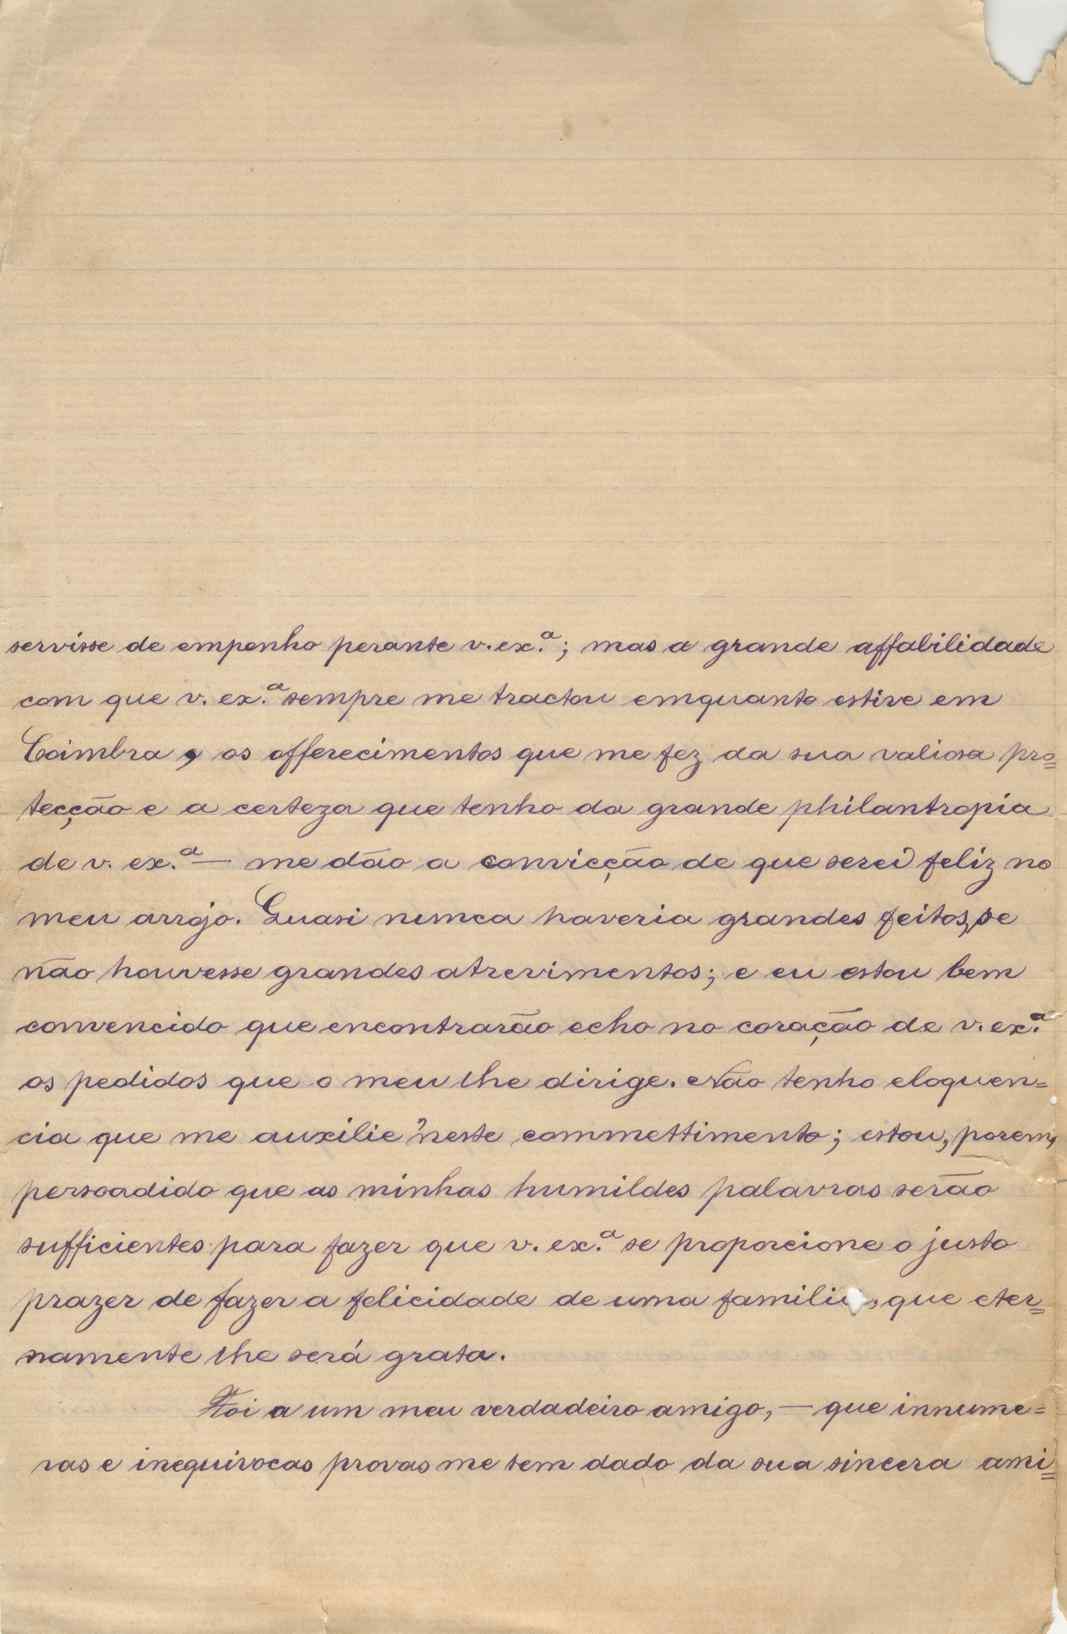 servisse de empenho perante v. ex.ª; mas a grande affabilidade
com que v. ex.ª sempre me tractou emquanto estive em
Coimbra, os offerecimentos que me fez da sua valiosa pro=
tecção e a certeza que tenho da grande philantropia
de v. ex.ª — me dão a convicção de que serei feliz no
meu arrojo. Quasi nunca haveria grandes feitos, se
não houvesse grandes atrevimentos; e eu estou bem
convencido que encontrarão echo no coração de v. ex.ª
os pedidos que o meu lhe dirige. Não tenho eloquen=
cia que me auxilie 'neste commettimento; estou, porem,
persoadido que as minhas humildes palavras serão
sufficientes para fazer que v. ex.ª se proporcione o justo
prazer de fazer a felicidade de uma familia, que eter=
namente lhe será grata.
Foi a um meu verdadeiro amigo, — que innume=
ras e inequivocas provas me tem dado da sua sincera ami=